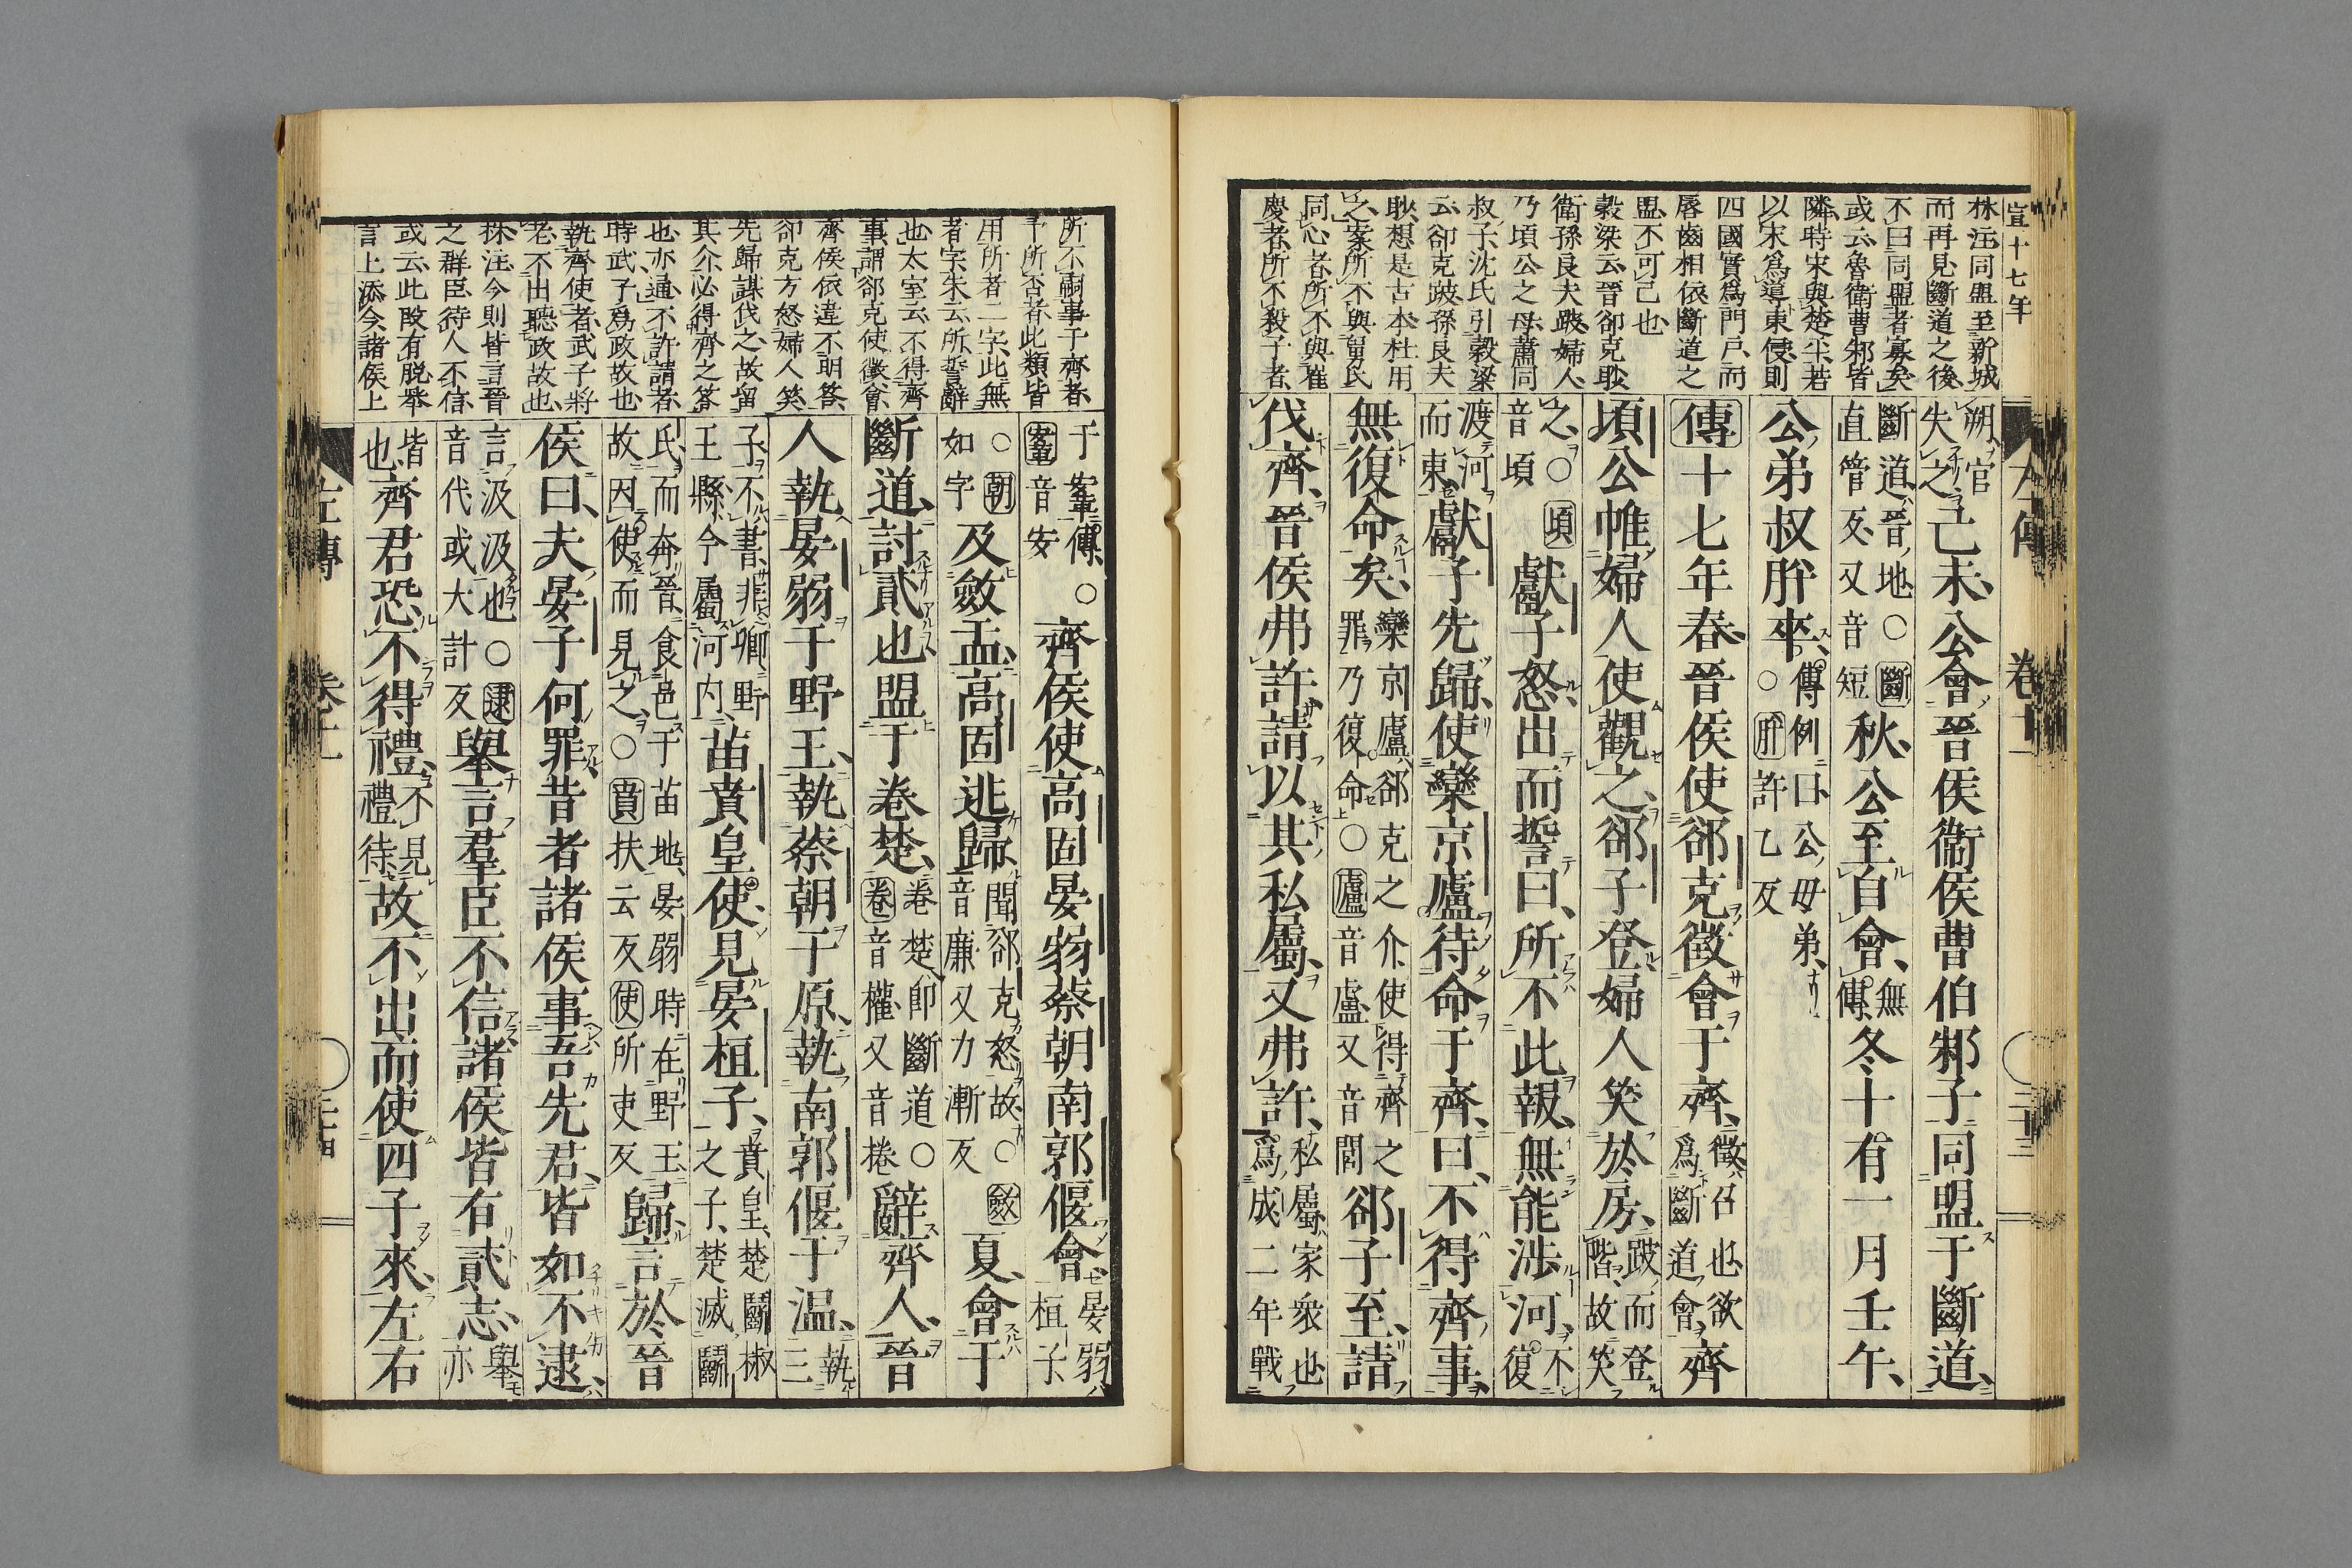 宣十七年
林注同盟至新城
而再見斷道之後
不曰同盟者寡矣
或云魯衛曹邾皆
隣時宋與楚平若
以宋爲導東侵則
四國實爲門戸而
唇齒相依斷道之
盟不可已也
穀梁云晉郤克眇
衛孫良夫跛婦人
乃頃公之母蕭同
叔子沈氏引穀梁
云郤克跛孫良夫
眇想是古本杜用
之案所不與舅氏
同心者所不與崔
慶者所不殺子者
朔官失之己未公會晉侯衛侯曹伯邾子同盟于斷道
斷道晉地○斷直管反又音短秋公至自會無傳冬十有一月壬午
公弟叔肸卒傳例曰公母弟○肸許乙反
傳十七年春晉侯使郤克徵會于齊徵召也欲爲斷道會齊
頃公帷婦人使觀之郤子登婦人笑於房跛而登階故笑
之○頃音頃獻子怒出而誓曰所不此報無能涉河不復
渡河而東獻子先歸使欒京廬待命于齊曰不得齊事
無復命矣欒京廬郤克之介使得齊之罪乃復命○廬音盧又音閭郤子至請
伐齊晉侯弗許請以其私屬又弗許私屬家衆也爲成二年戰
左傳 卷十一 二十三
所不嗣事于齊者
予所否者此類皆
用所者二字此無
者字朱云所誓辭
也太室云不得齊
事謂郤克使徵會
齊侯依違不明答
郤克方怒婦人笑
先歸謀伐之故留
其介必得齊之答
也亦通不許請者
時武子爲政故也
執齊使者武子將
老不出聽政故也
林注今則皆言晉
之群臣待人不信
或云此段有脱舉
言上添今諸侯上
于鞌傳○鞌音安齊侯使高固晏弱蔡朝南郭偃會晏弱桓子
○朝如字及斂盂高固逃歸聞郤克怒故○斂音廉又力漸反夏會于
斷道討貳也盟于卷楚卷楚即斷道○卷音權又音捲辭齊人晉
人執晏弱于野王執蔡朝于原執南郭偃于温執三
子不書非卿野王縣今屬河内苗賁皇使見晏桓子賁皇楚鬭椒之子楚滅鬭
氏而奔晉食邑于苗地晏弱時在野王故因使而見之○賁扶云反使所吏反歸言於晉
侯曰夫晏子何罪昔者諸侯事吾先君皆如不逮
言汲汲也○逮音代或大計反舉言群臣不信諸侯皆有貳志舉亦
皆也齊君恐不得禮不見禮待故不出而使四子來左右
左傳 卷十一 二十四